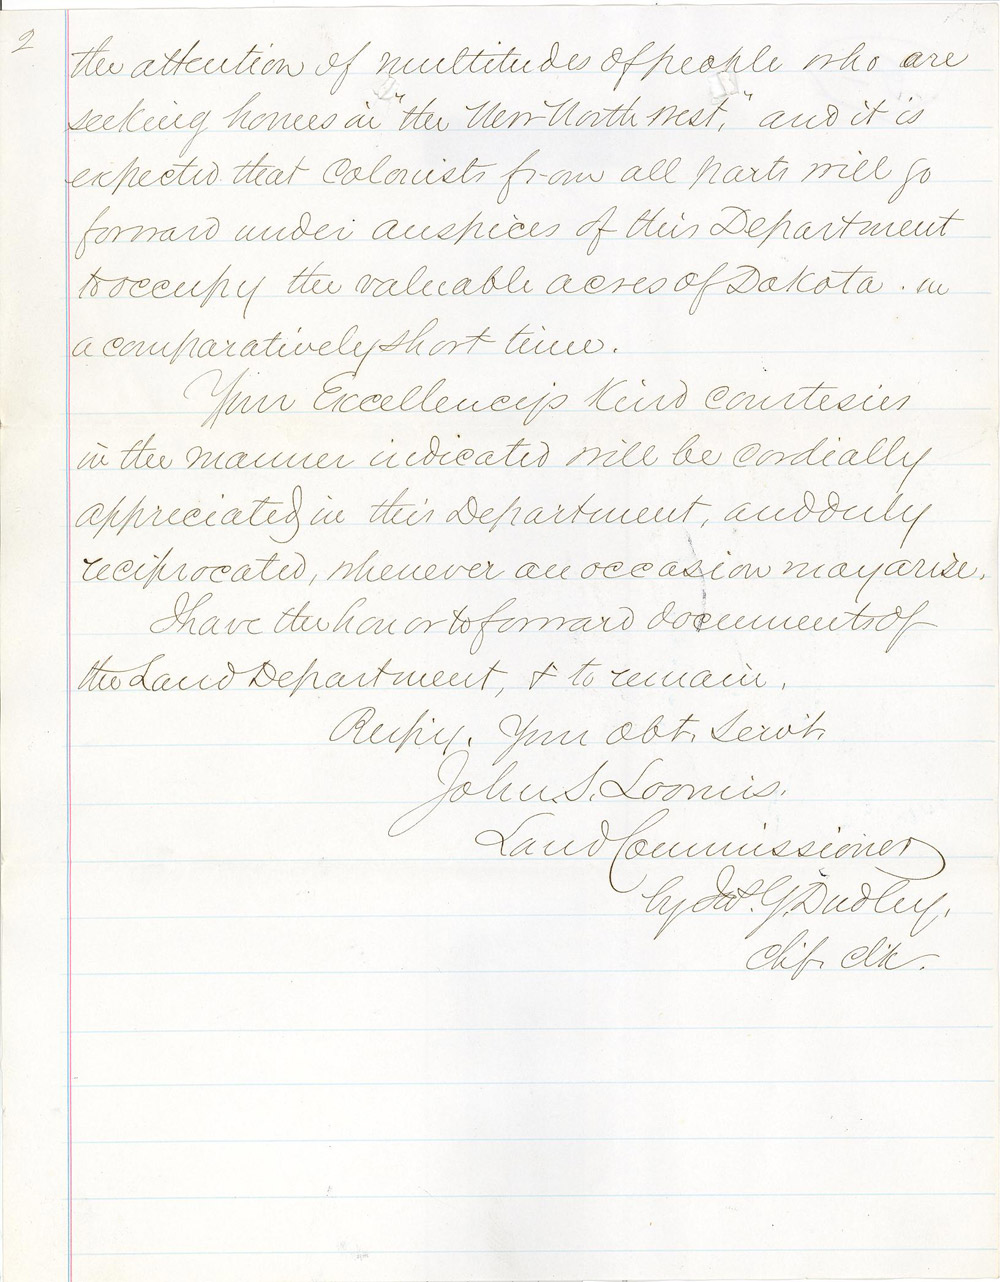 2
the attention of multitudes of people who are
seeking homes in "the New North West," and it is
expected that Colonists from all parts will go
forward under auspices of this Department
to occupy the valuable acres of Dakota. in
a comparatively short time.
Your Excellency's kind courtesies
in the manner indicated will be cordially
appreciated in this Department, and duly
reciprocated, whenever an occasion may arise.
I have the honor to forward documents of
the Land Department, & to remain,
Respy. Your obt. Servt.
John. S. Loomis.
Land Commissioner
by Jno. G. Dudley.
Chf. Clk.